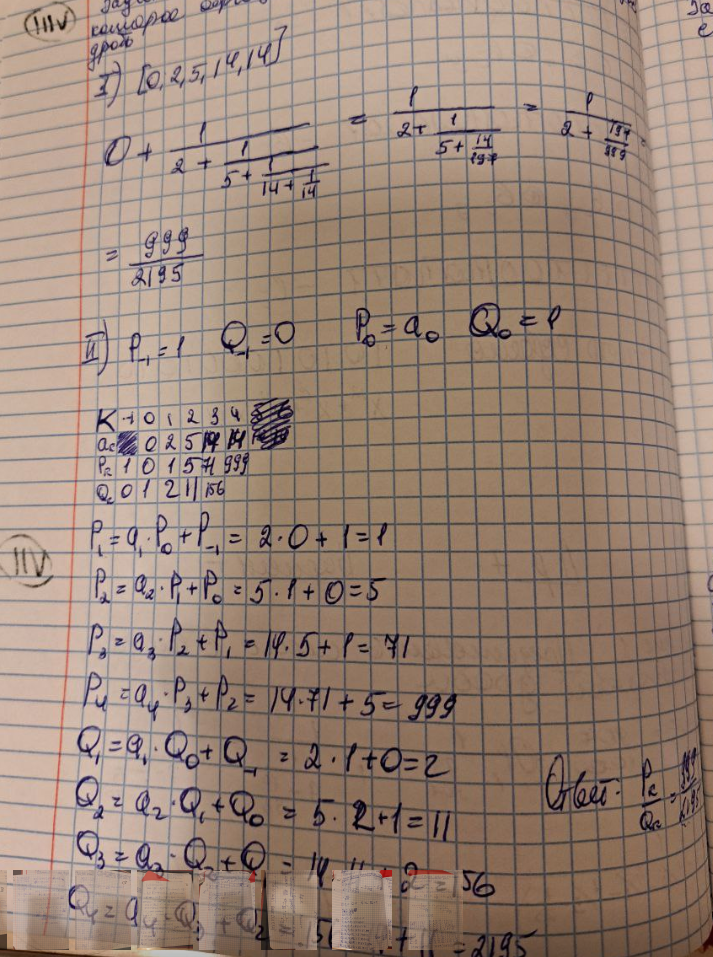 которое
дробь
I) [0, 2, 5, 14, 14]
0 + 1/(2 + 1/(5 + 1/(14 + 1/14))) = 1/(2 + 1/(5 + 14/197)) = 1/(2 + 197/999) =
= 999/2195
II) P₋₁ = 1 Q₋₁ = 0 P₀ = a₀ Q₀ = 1
K -1 0 1 2 3 4
aₖ 0 2 5 14 14
Pₖ 1 0 1 5 71 999
Qₖ 0 1 2 11 156
P₁ = a₁·P₀ + P₋₁ = 2·0 + 1 = 1
P₂ = a₂·P₁ + P₀ = 5·1 + 0 = 5
P₃ = a₃·P₂ + P₁ = 14·5 + 1 = 71
P₄ = a₄·P₃ + P₂ = 14·71 + 5 = 999
Q₁ = a₁·Q₀ + Q₋₁ = 2·1 + 0 = 2
Q₂ = a₂·Q₁ + Q₀ = 5·2 + 1 = 11
Q₃ = a₃·Q₂ + Q = 14·11 + 2 = 156
Q₄ = a₄·Q₃ + Q₂ = 156 + 11 = 2195
Ответ: Pₖ/Qₖ = 999/2195